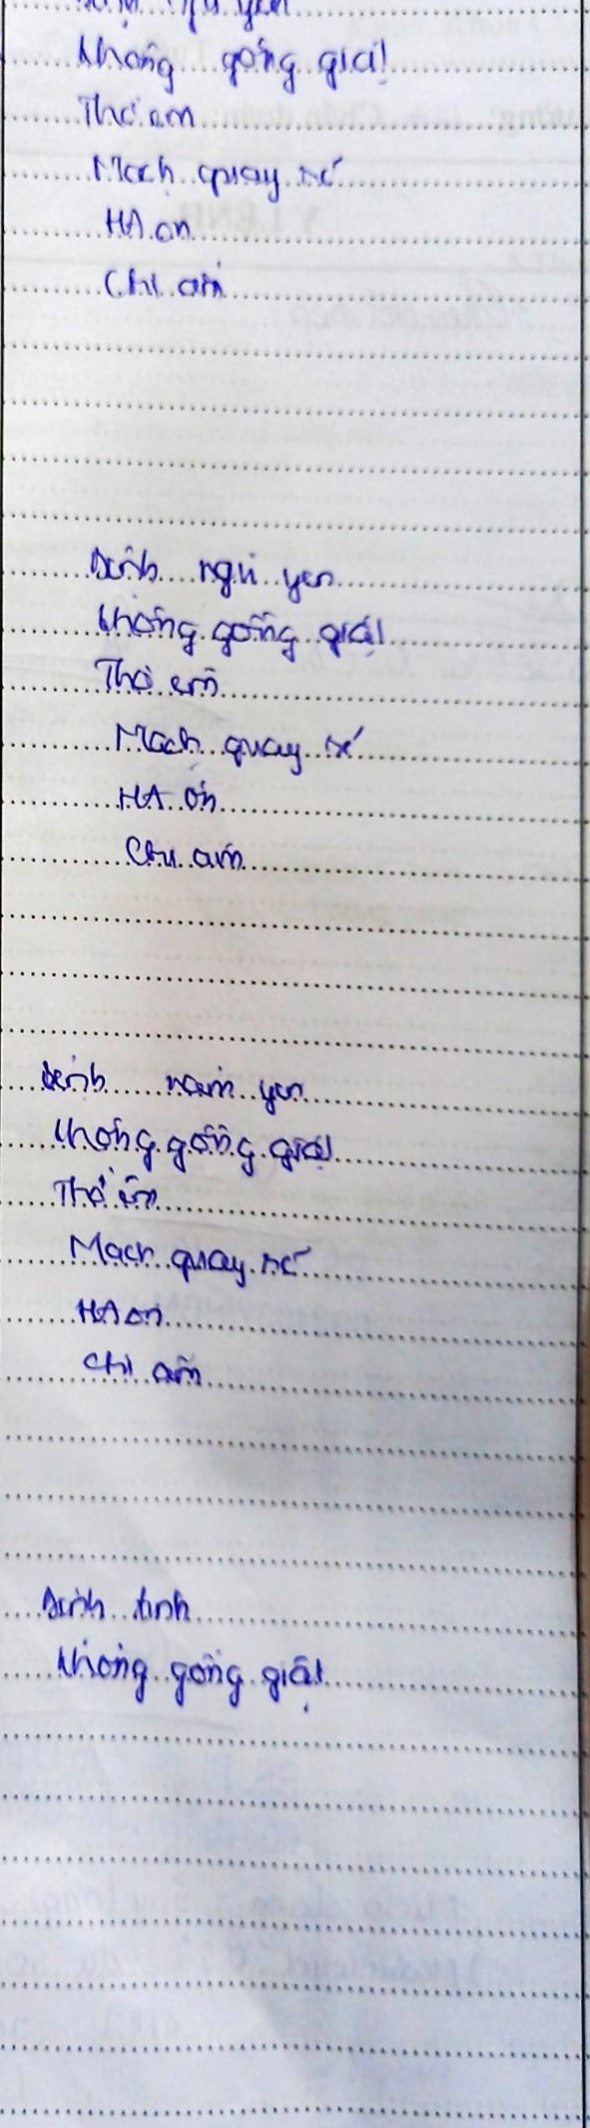 ngủ yên
Không gồng giật
Thở êm
Mạch quay rõ
HA ổn
Chi ấm
Bệnh ngủ yên
Không gồng giật
Thở êm
Mạch quay rõ
HA ổn
Chi ấm
Bệnh nằm yên
Không gồng giật
Thở êm
Mạch quay rõ
HA ổn
Chi ấm
Bệnh tỉnh
Không gồng giật